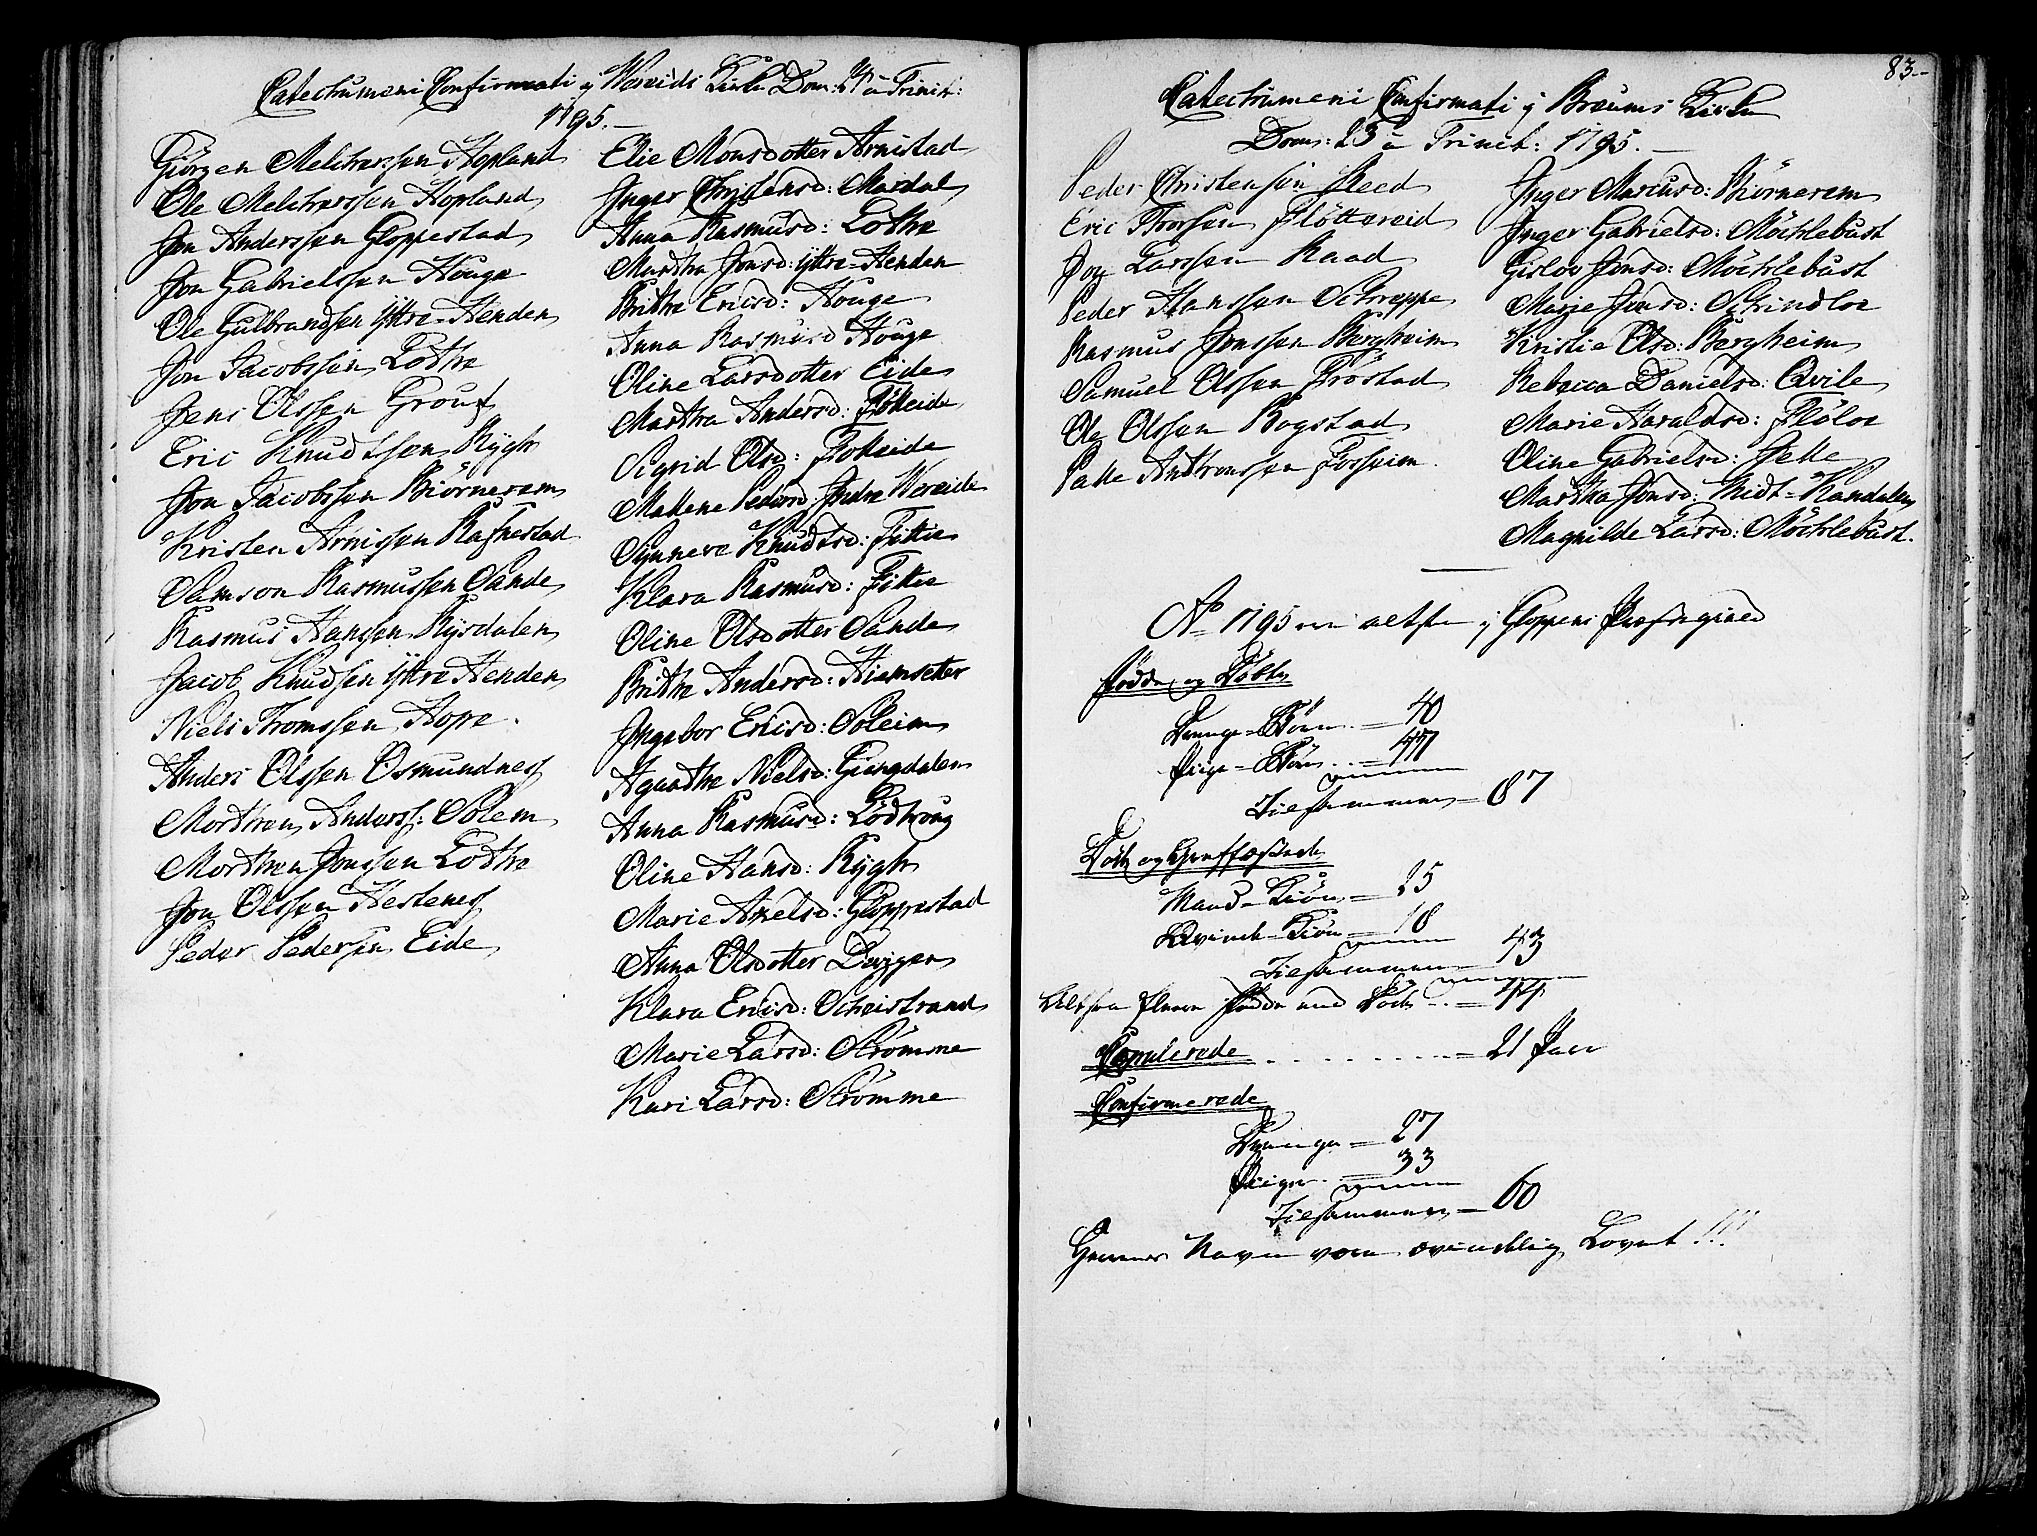 Catechumeni Confirmati j Vereids Kirke Dom: 21 a Trinit:
1795.
Giörgen Melchersen Hopland
Ole Melcherssen Hopland
Jon Anderssen Gloppestad
Jon Gabrielssen Houge
Ole Gulbrandsen Yttre-Henden
Jon Jacobssen Lothe
Jens Olssen Grouf
Eric Knudssen Rygh
Jon Jacobssen Biörnerem
Kristen Arnissen Rafnestad
Samson Rasmussen Sande
Rasmus Hanssen Rysdalen
Jacob Knudsen Yttre Henden
Niels Thomssen Hope
Anders Olssen Osmundnes
Morthen Anderss: Solem
Morthen Jonssen Lothe
Jon Olssen Hestenes
Peder Pedersen Eide
Elie Monsdotter Arnistad
Inger Christensd: Mardal
Anna Rasmusd: Lothe
Martha Jonsd: Yttre-Henden
Brithe Ericsd: Houge
Anna Rasmusd Houge
Oline Larsdotter Eide
Martha Andersd: Fökeide
Sigrid Olsd: Fökeide
Mallene Pedersd: Indre Wereide
Synneve Knudtsd: Fittie
Klara Rasmusd: Fittie
Oline Olsdotter Sande
Brithe Andersd: Hiemseter
Ingebor Ericsd: Soleim
Agaathe Nielsd: Giengdalen
Anna Rasmusd: Lödtroug
Oline Hansd: Rygh
Marie Axelsd: Gloppestad
Anna Olsdotter Devigen
Klara Ericsd: Scheistrand
Marie Larsd: Strömme
Kari Larsd: Strömme
83--
Catechumeni Confirmati j Bræums Kirke
Dom: 23 a Trinit: 1795.
Peder Christensen Reed
Eric Thorsen Flöttereid
Joy Larssen Raad
Peder Hanssen Schreppe
Rasmus Jonssen Bergheim
Samuel Olssen Fröstad
Ole Olssen Bogstad
Palle Anthonssen Fossheim
Inger Mariusd: Biörnerem
Inger Gabrielsd: Möchlebust
Gislov Jonsd: Möchlebust
Marje Jonsd: Schindloe
Kristie Olsd: Bergheim
Rebecca Danielsd: Qvile
Marie Haraldsd: Flöloe
Oline Gabrielsd: Jelle
Martha Jonsd: Midt-Kandalen
Magnilde Larsd: Möchlebust.
Ao 1795 er altsaa j Gloppens Præstegield
Födde og Döbte
Drenge-Börn = 40
Pige-Börn = 47
Tilsammen = 87
Döde og Begravede
Mand-Kiön = 25
Qvinde-Kiön = 18
Tilsammen = 43
Altsaa fleere Födde end Döde = 44
Copulerede = 21 Par
Confirmerede
Drenge = 27
Piger = 33
Tilsammen = 60
Herrens Navn være ævindelig Lovet!!!